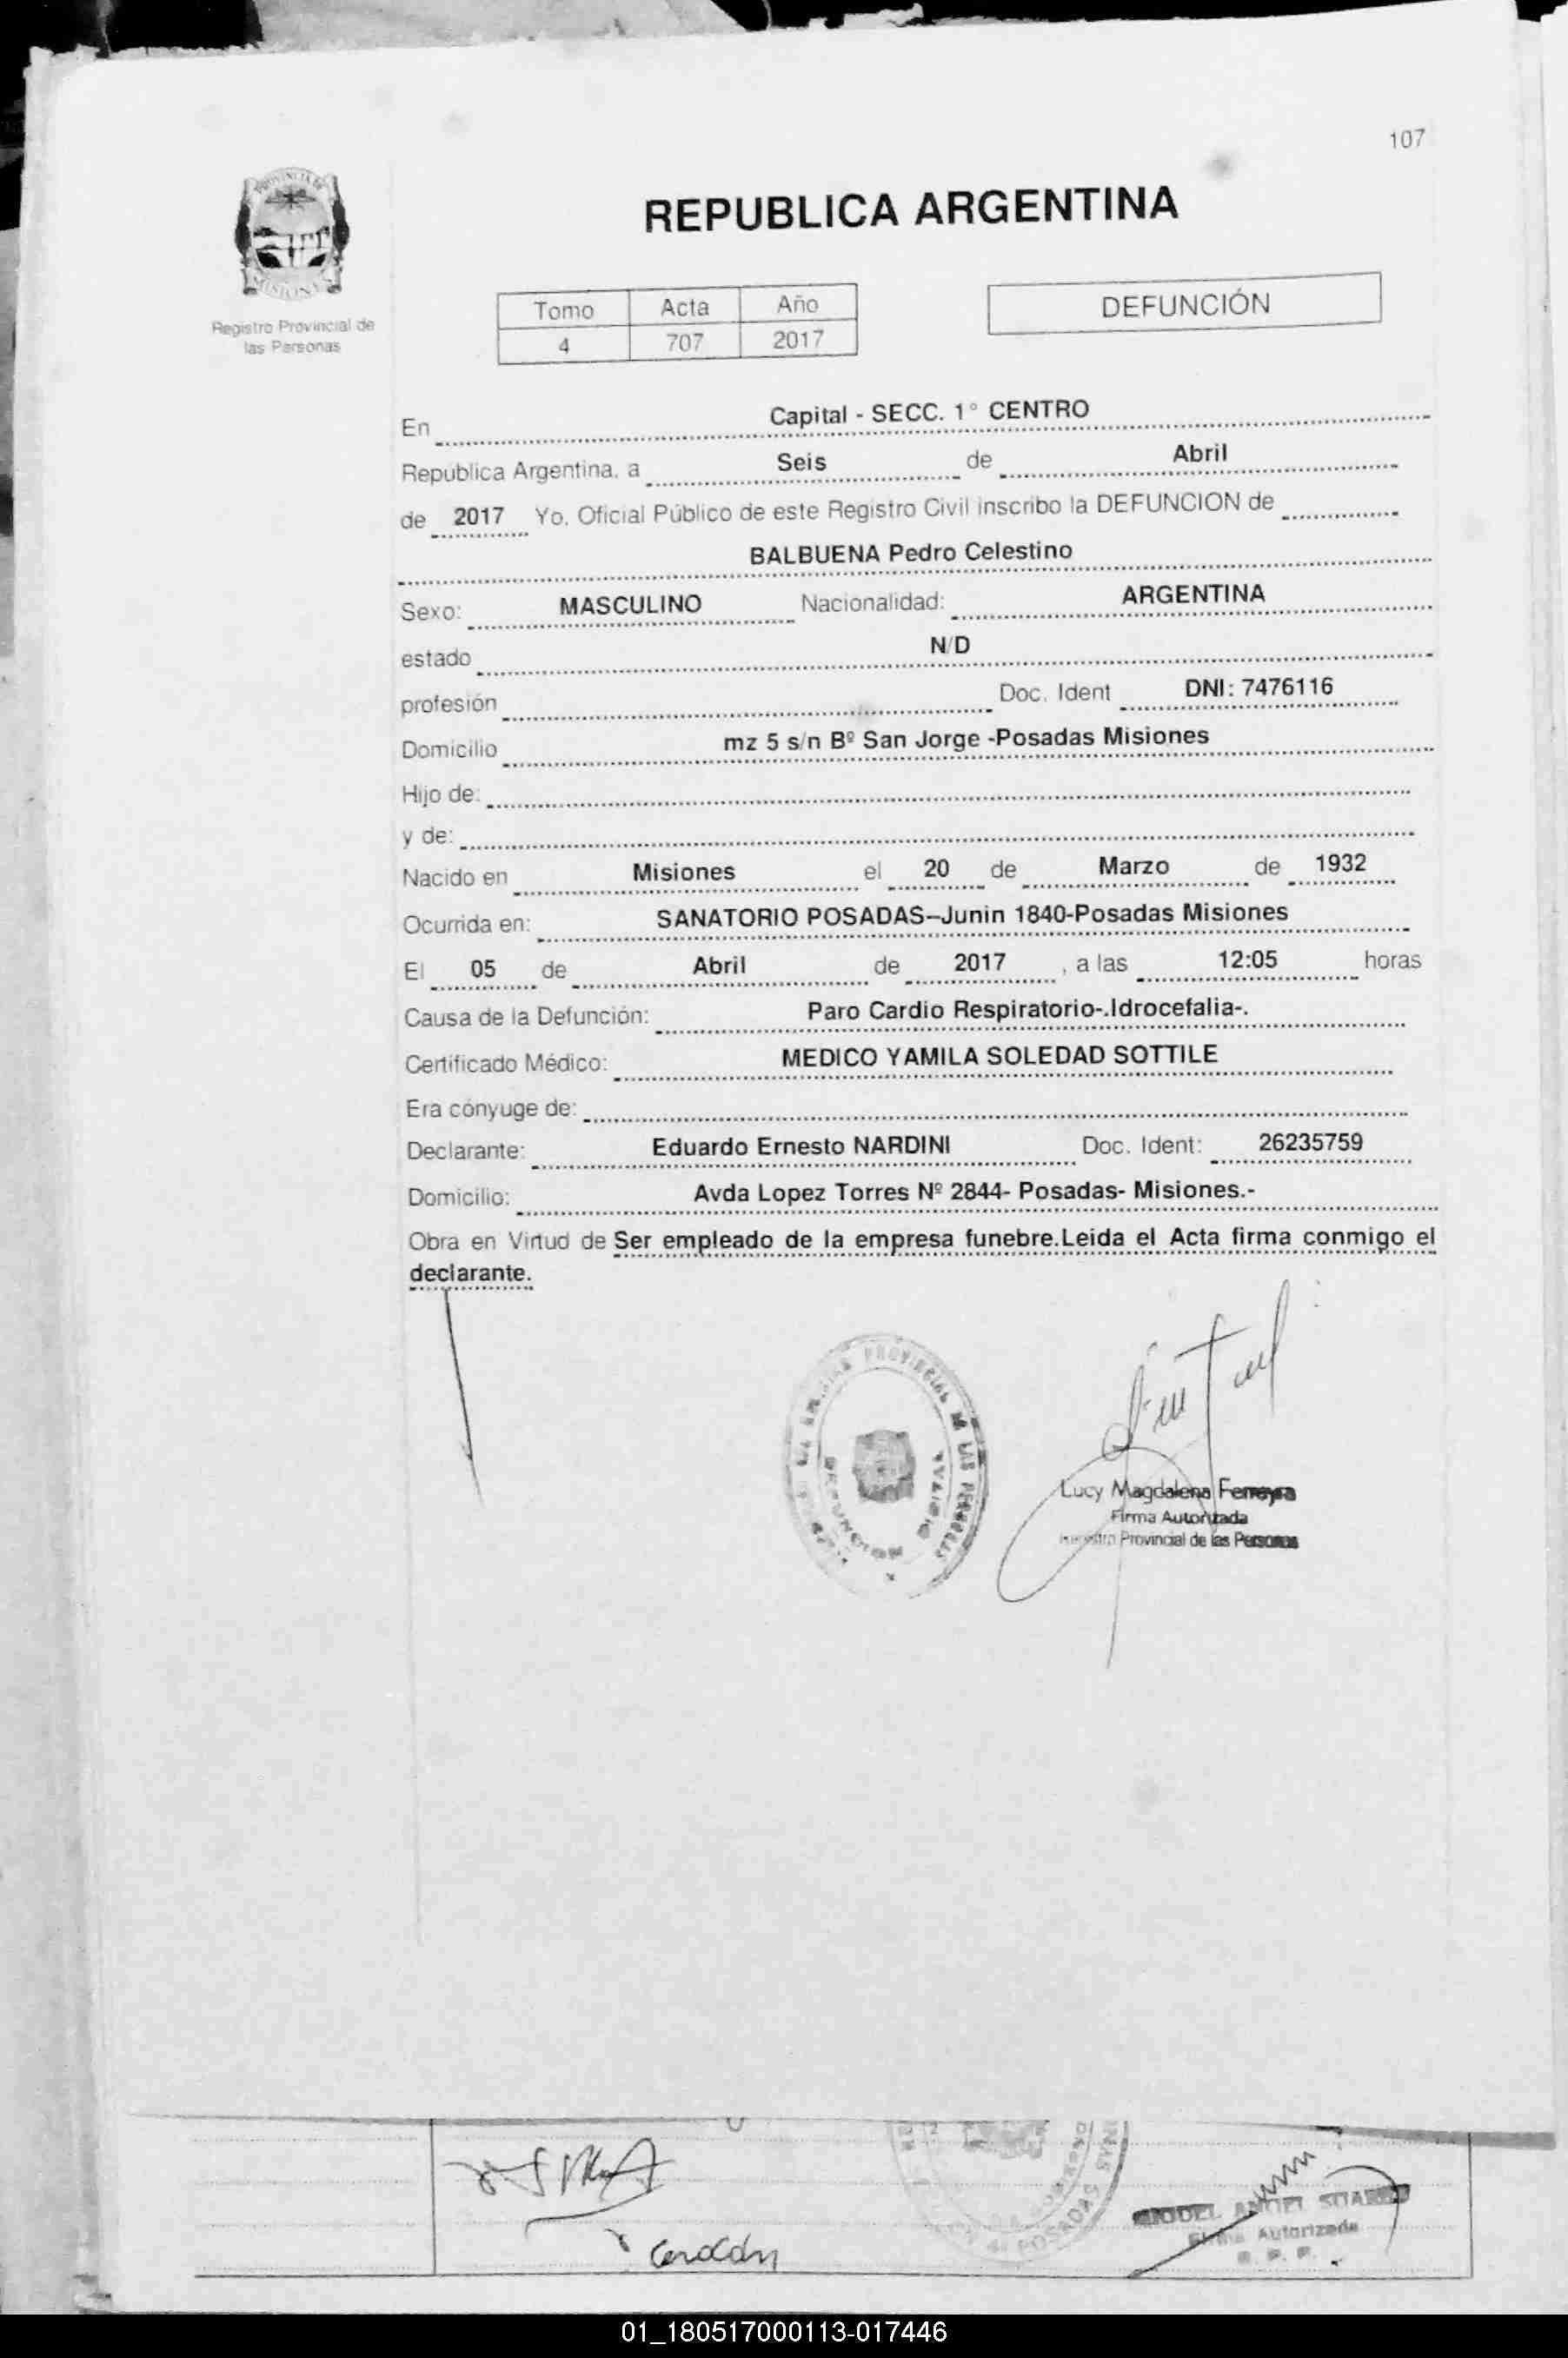 107
PROVINCIA DE
MISIONES
Registro Provincial de
las Personas
REPUBLICA ARGENTINA
Tomo Acta Año
4 707 2017
DEFUNCIÓN
En Capital - SECC. 1° CENTRO
Republica Argentina, a Seis de Abril
de 2017 Yo, Oficial Público de este Registro Civil inscribo la DEFUNCION de
BALBUENA Pedro Celestino
Sexo: MASCULINO Nacionalidad: ARGENTINA
estado N/D
profesión Doc. Ident DNI: 7476116
Domicilio mz 5 s/n Bº San Jorge -Posadas Misiones
Hijo de:
y de:
Nacido en Misiones el 20 de Marzo de 1932
Ocurrida en: SANATORIO POSADAS--Junin 1840-Posadas Misiones
El 05 de Abril de 2017 , a las 12:05 horas
Causa de la Defunción: Paro Cardio Respiratorio-.Idrocefalia-.
Certificado Médico: MEDICO YAMILA SOLEDAD SOTTILE
Era cónyuge de:
Declarante: Eduardo Ernesto NARDINI Doc. Ident: 26235759
Domicilio: Avda Lopez Torres Nº 2844- Posadas- Misiones.-
Obra en Virtud de Ser empleado de la empresa funebre.Leida el Acta firma conmigo el
declarante.
PROVINCIAL DE LAS PERSONAS
DEFUNCION DIGITAL
Lucy Magdalena Ferreyra
Firma Autorizada
Provincial de las Personas
POSADAS
MIGUEL ANGEL SUAREZ
Firma Autorizada
01_180517000113-017446